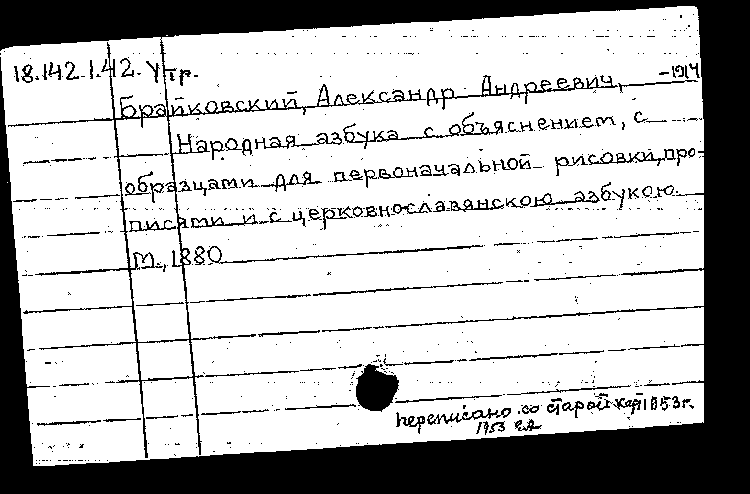 18.142.1.42. Утр.
Брайковский, Александр Андреевич, -1914
Народная азбука с объяснением, с
образцами для первоначальной рисовки, про-
писями и с церковнославянскою азбукою.
М., 1880
переписано со старой карт 1953 г.
1953